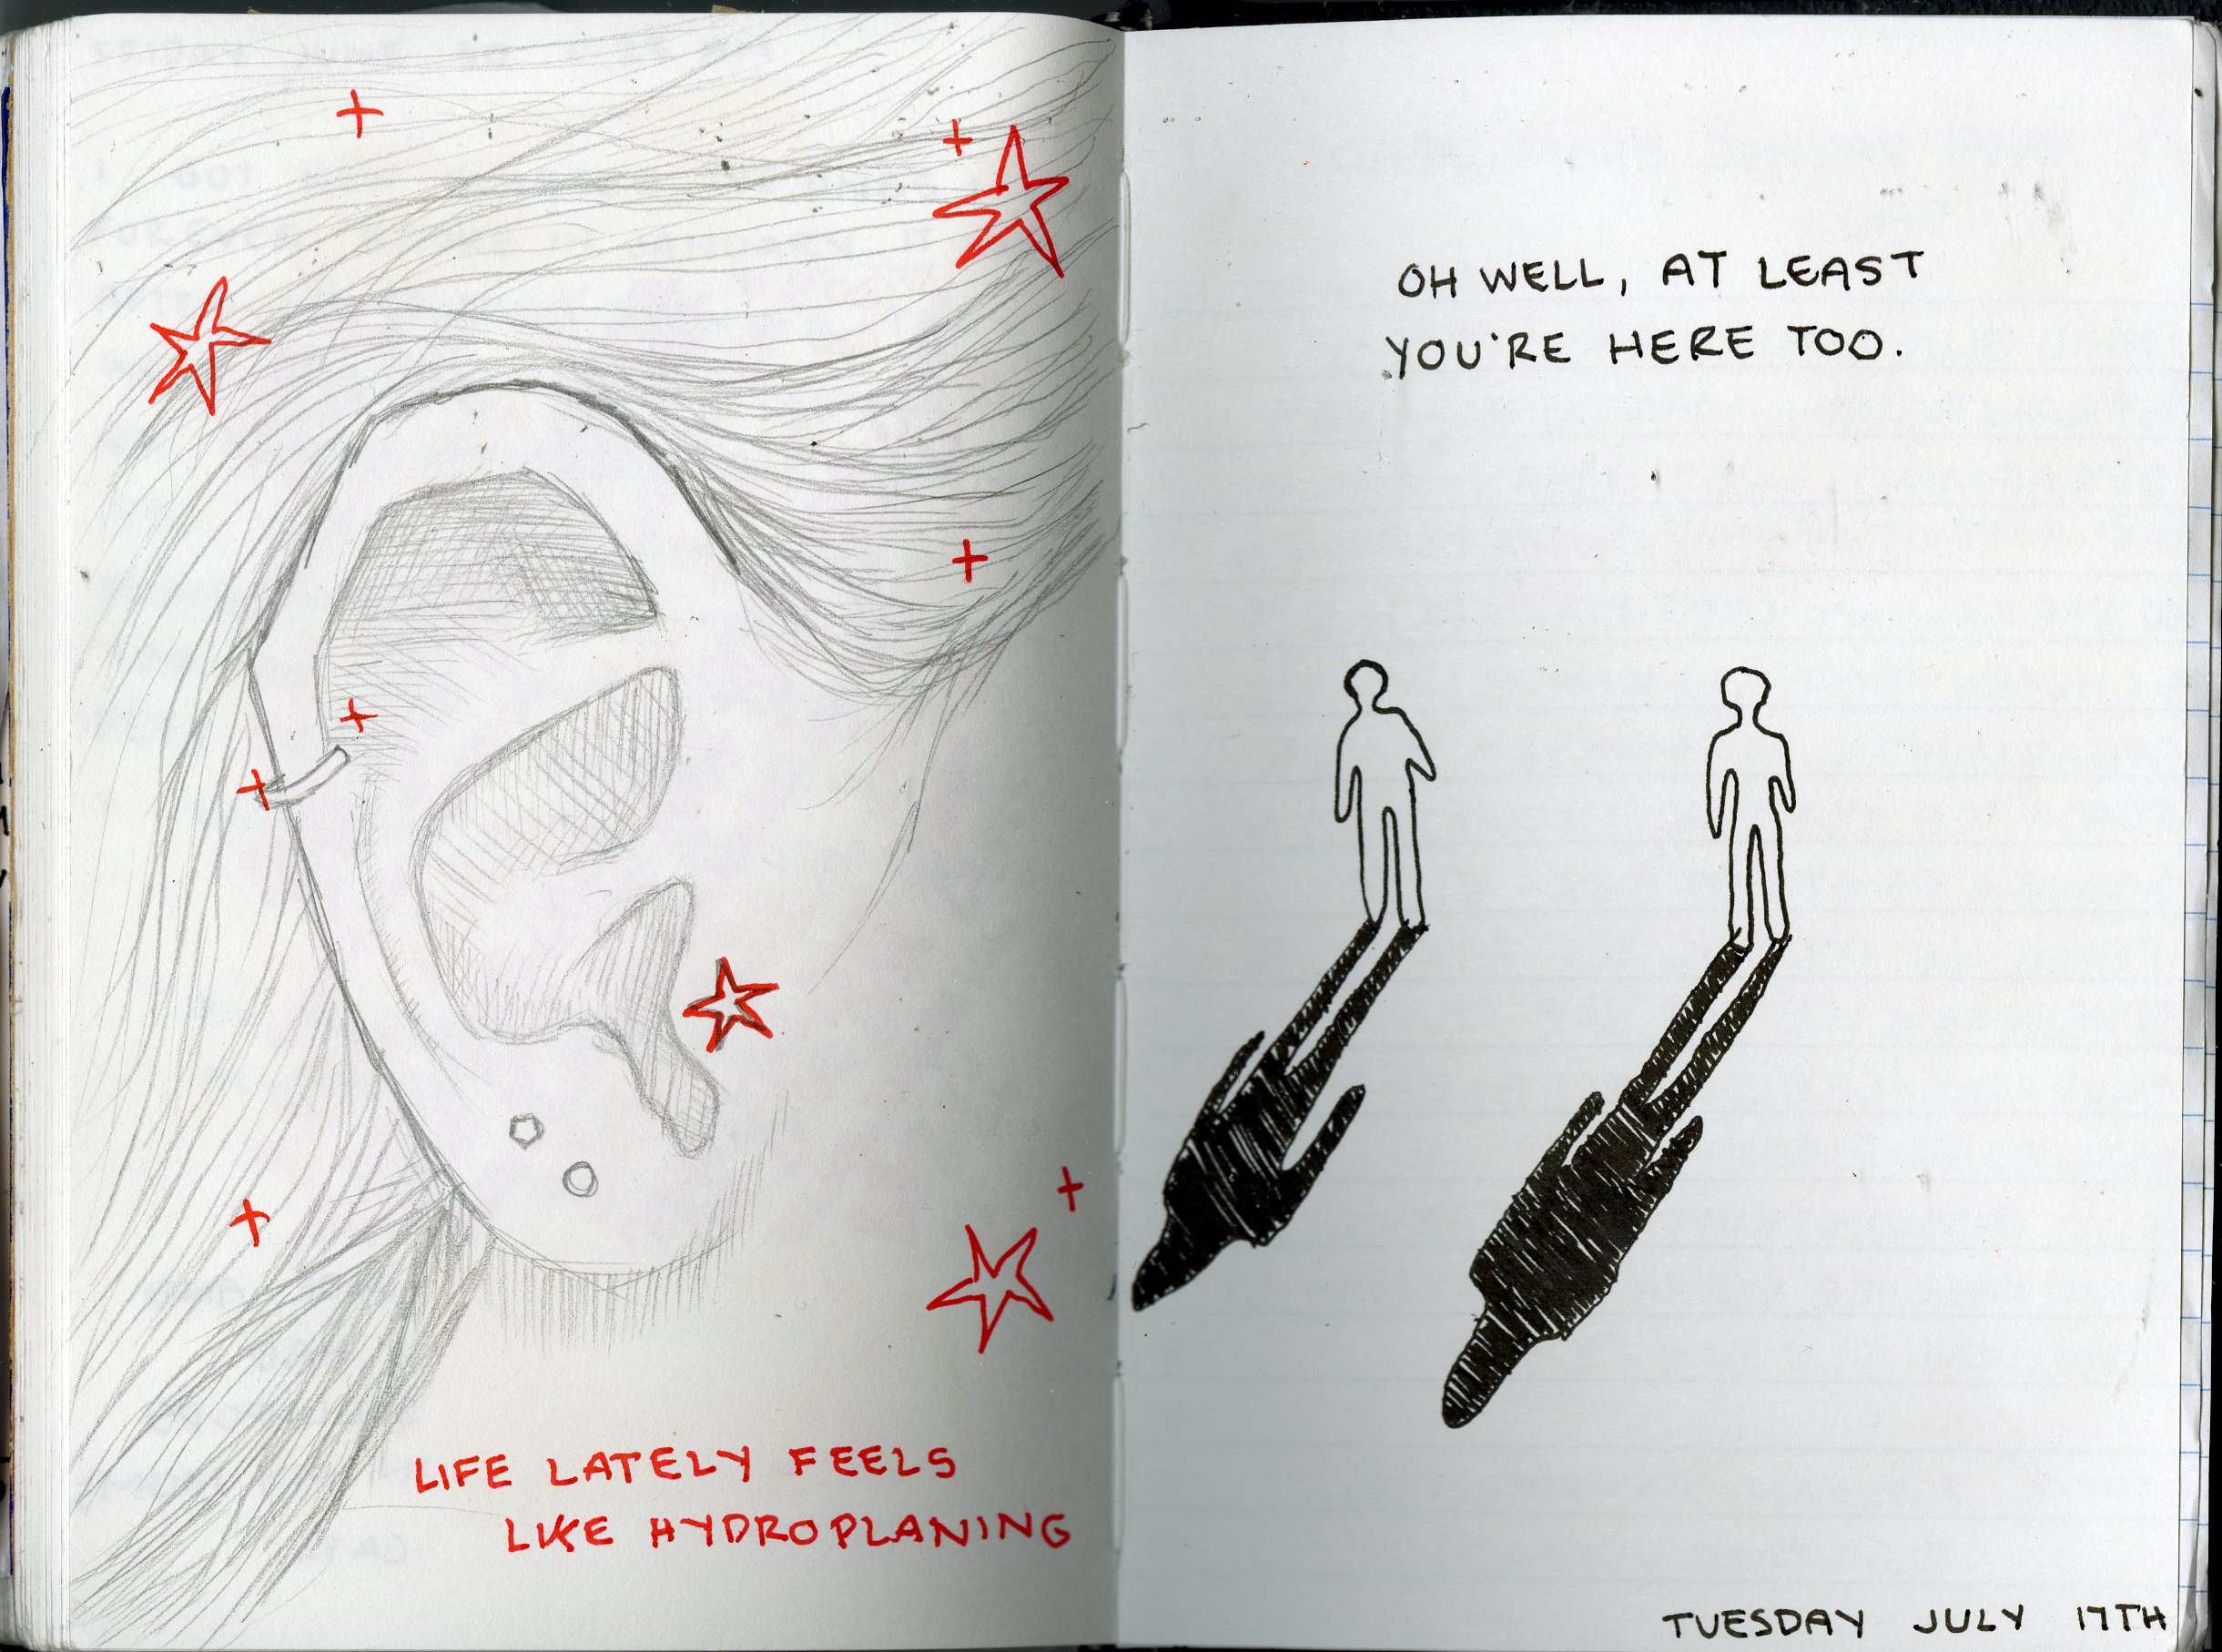 LIFE LATELY FEELS
LIKE HYDROPLANING
OH WELL, AT LEAST
YOU'RE HERE TOO.
TUESDAY JULY 17TH